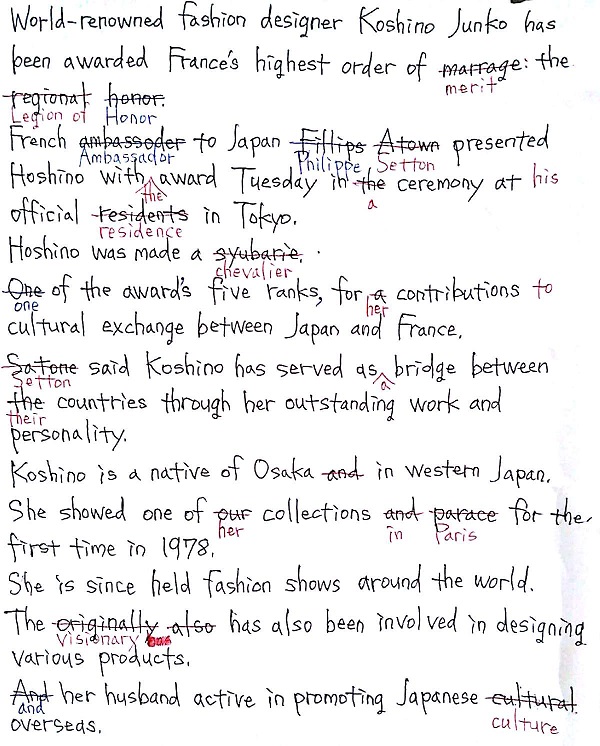 World-renowned fashion designer Koshino Junko has
been awarded France's highest order of marrage: the
merit
regional honor.
Legion of Honor
French ambassoder to Japan Fillips Atown presented
Ambassador Philippe Setton
Hoshino with award Tuesday in the ceremony at his
the a
official residents in Tokyo.
residence
Hoshino was made a syubarie.
chevalier
One of the award's five ranks, for a contributions to
one her
cultural exchange between Japan and France.
Satone said Koshino has served as bridge between
Setton a
the countries through her outstanding work and
their
personality.
Koshino is a native of Osaka and in western Japan.
She showed one of our collections and parace for the
her in Paris
first time in 1978.
She is since held fashion shows around the world.
The originally also has also been involved in designing
visionary has
various products.
And her husband active in promoting Japanese cultural
and
overseas. culture